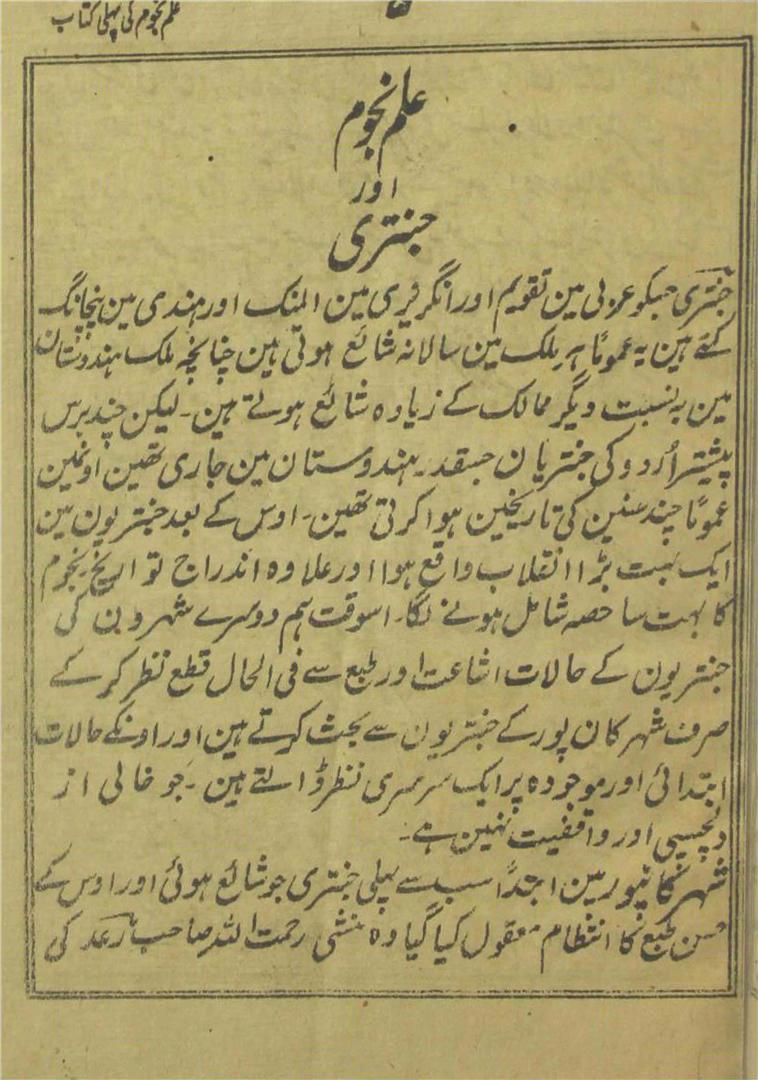 علم نجوم کی پہلی کتاب
۵
علم نجوم
اور
جنتری
جنتری جسکو عربی مین تقویم اور انگریزی مین المنک اور ہندی مین پنچانگ
کہتے ہین یہ عموماً ہر ملک مین سالانہ شائع ہوتی ہین چنانچہ ملک ہندوستان
مین بہ نسبت دیگر ممالک کے زیادہ شائع ہوتے ہین۔ لیکن چند برس
پیشتر اُردو کی جنتریان جسقدر ہندوستان مین جاری تھین اونمین
عموماً چند سنین کی تاریخین ہوا کرتی تھین۔ اوس کے بعد جنتریون مین
ایک بہت بڑا انقلاب واقع ہوا اور علاوہ اندراج تواریخ نجوم
کا بہت سا حصہ شامل ہونے لگا۔ اسوقت ہم دوسرے شہرون کی
جنتریون کے حالات اشاعت اور طبع سے فی الحال قطع نظر کرکے
صرف شہر کان پور کے جنتریون سے بحث کرتے ہین اور اونکے حالات
ابتدائی اور موجودہ پر ایک سرسری نظر ڈالتے ہین۔ جو خالی از
دلچسپی اور واقفیت نہین ہے۔
شہر کانپور مین ابتداً سب سے پہلی جنتری جو شائع ہوئی اور اوس کے
حسن طبع کا انتظام معقول کیا گیا وہ منشی رحمت اللہ صاحب رعد کی